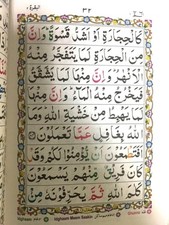 البقرة ٢
٣٢
كَالْحِجَارَةِ اَوْ اَشَدُّ قَسْوَةً وَاِنَّ
مِنَ الْحِجَارَةِ لَمَا يَتَفَجَّرُ مِنْهُ
الْاَنْهٰرُ وَاِنَّ مِنْهَا لَمَا يَشَّقَّقُ
فَيَخْرُجُ مِنْهُ الْمَآءُ وَاِنَّ مِنْهَا
لَمَا يَهْبِطُ مِنْ خَشْيَةِ اللّٰهِ وَمَا
اللّٰهُ بِغَافِلٍ عَمَّا تَعْمَلُوْنَ
اَفَتَطْمَعُوْنَ اَنْ يُّؤْمِنُوْا لَكُمْ وَقَدْ
كَانَ فَرِيْقٌ مِّنْهُمْ يَسْمَعُوْنَ
كَلٰمَ اللّٰهِ ثُمَّ يُحَرِّفُوْنَهٗ مِنْ